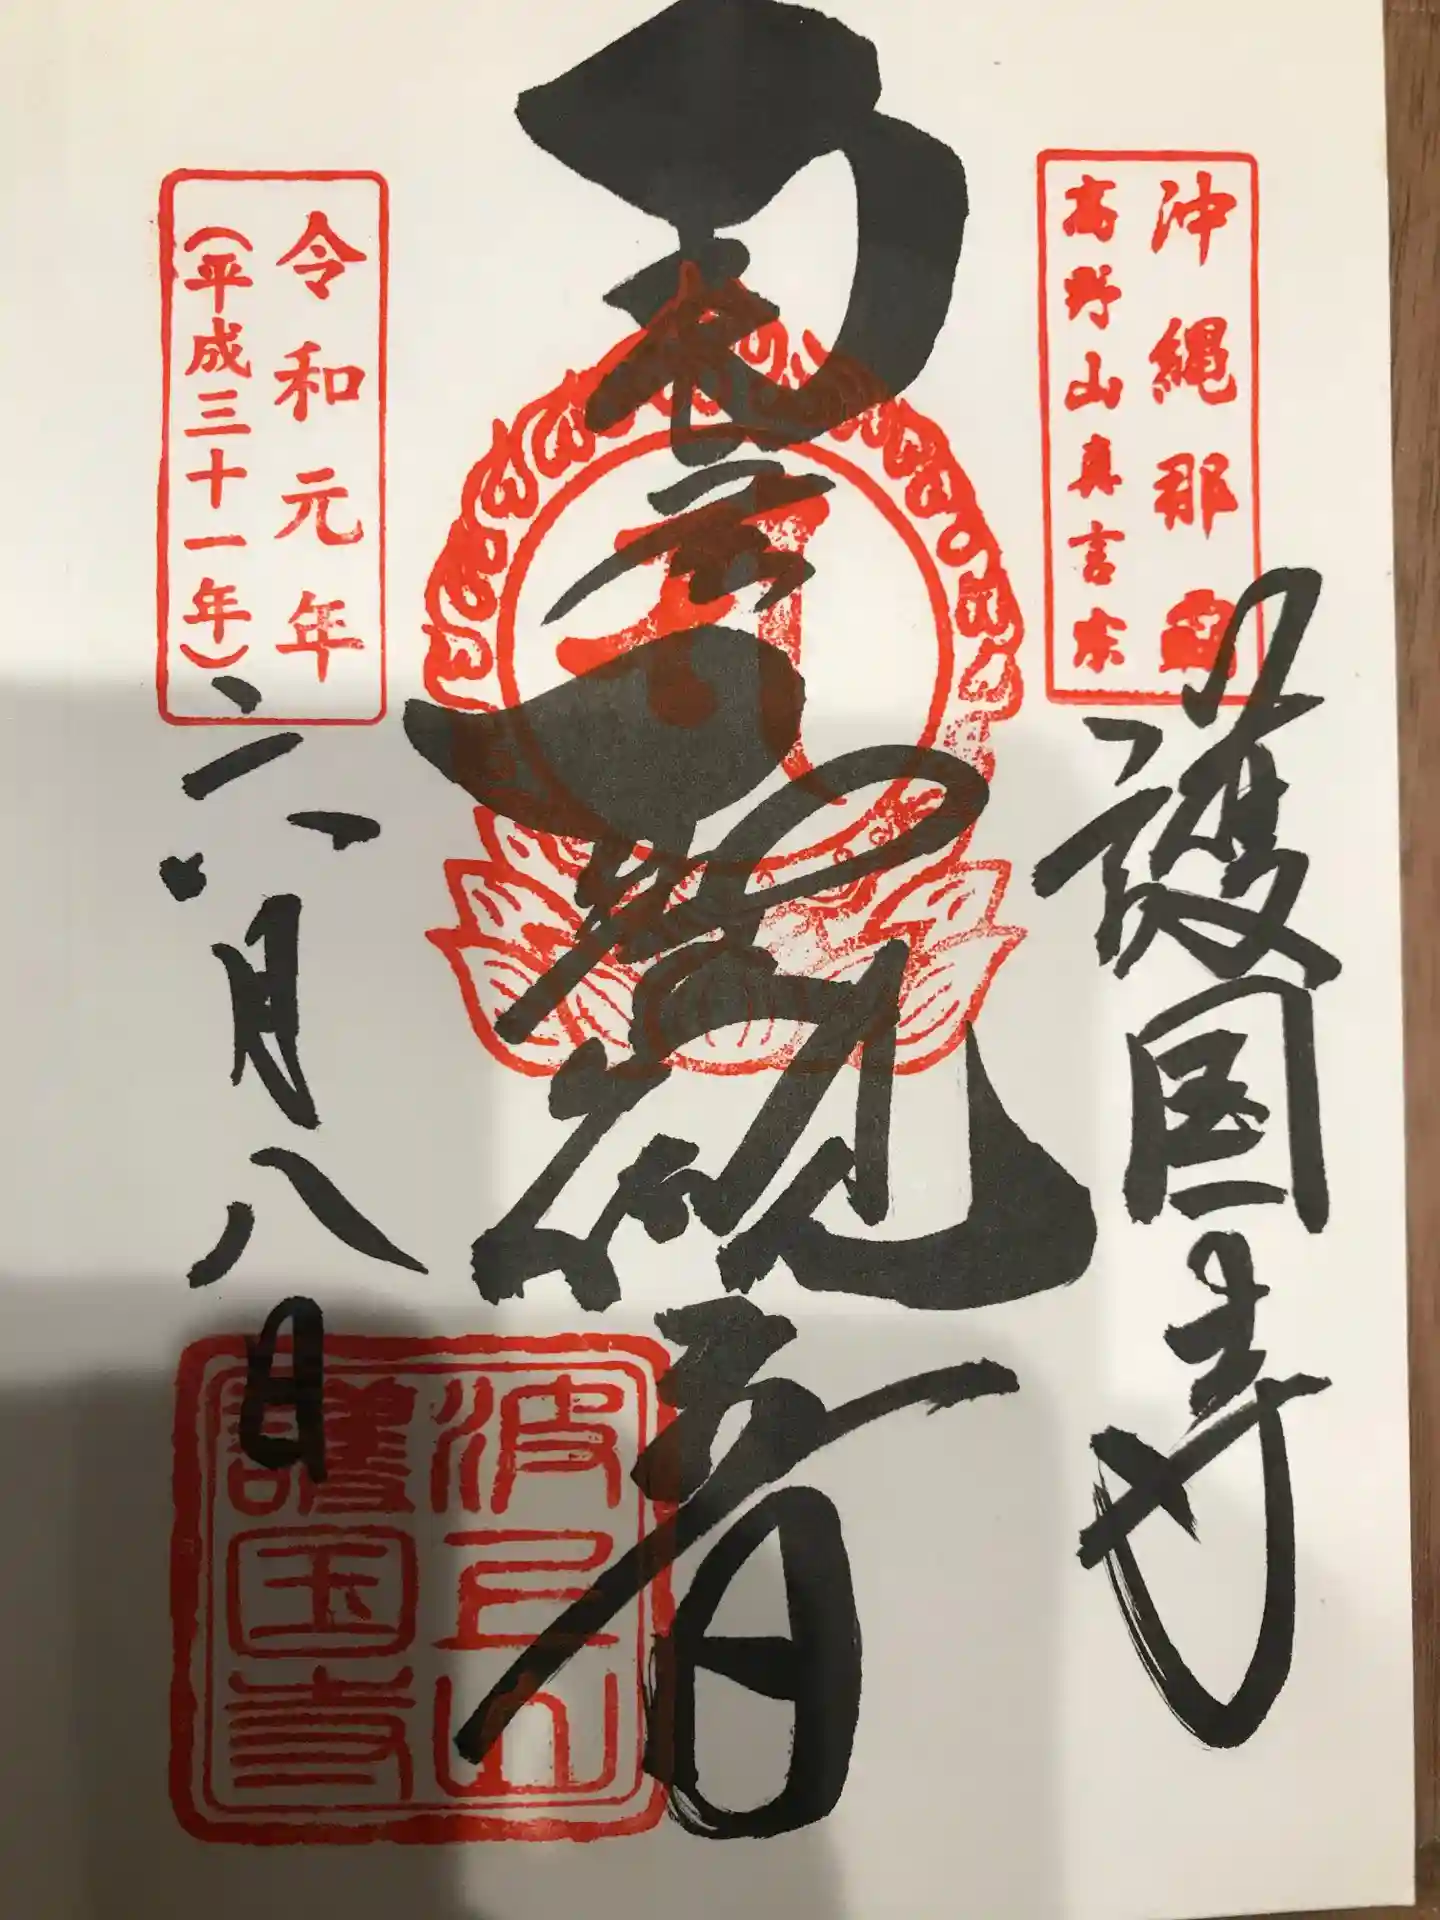 沖縄那覇
高野山真言宗
護国寺
聖観音
令和元年
(平成三十一年)
六月八日
波上山
護国寺